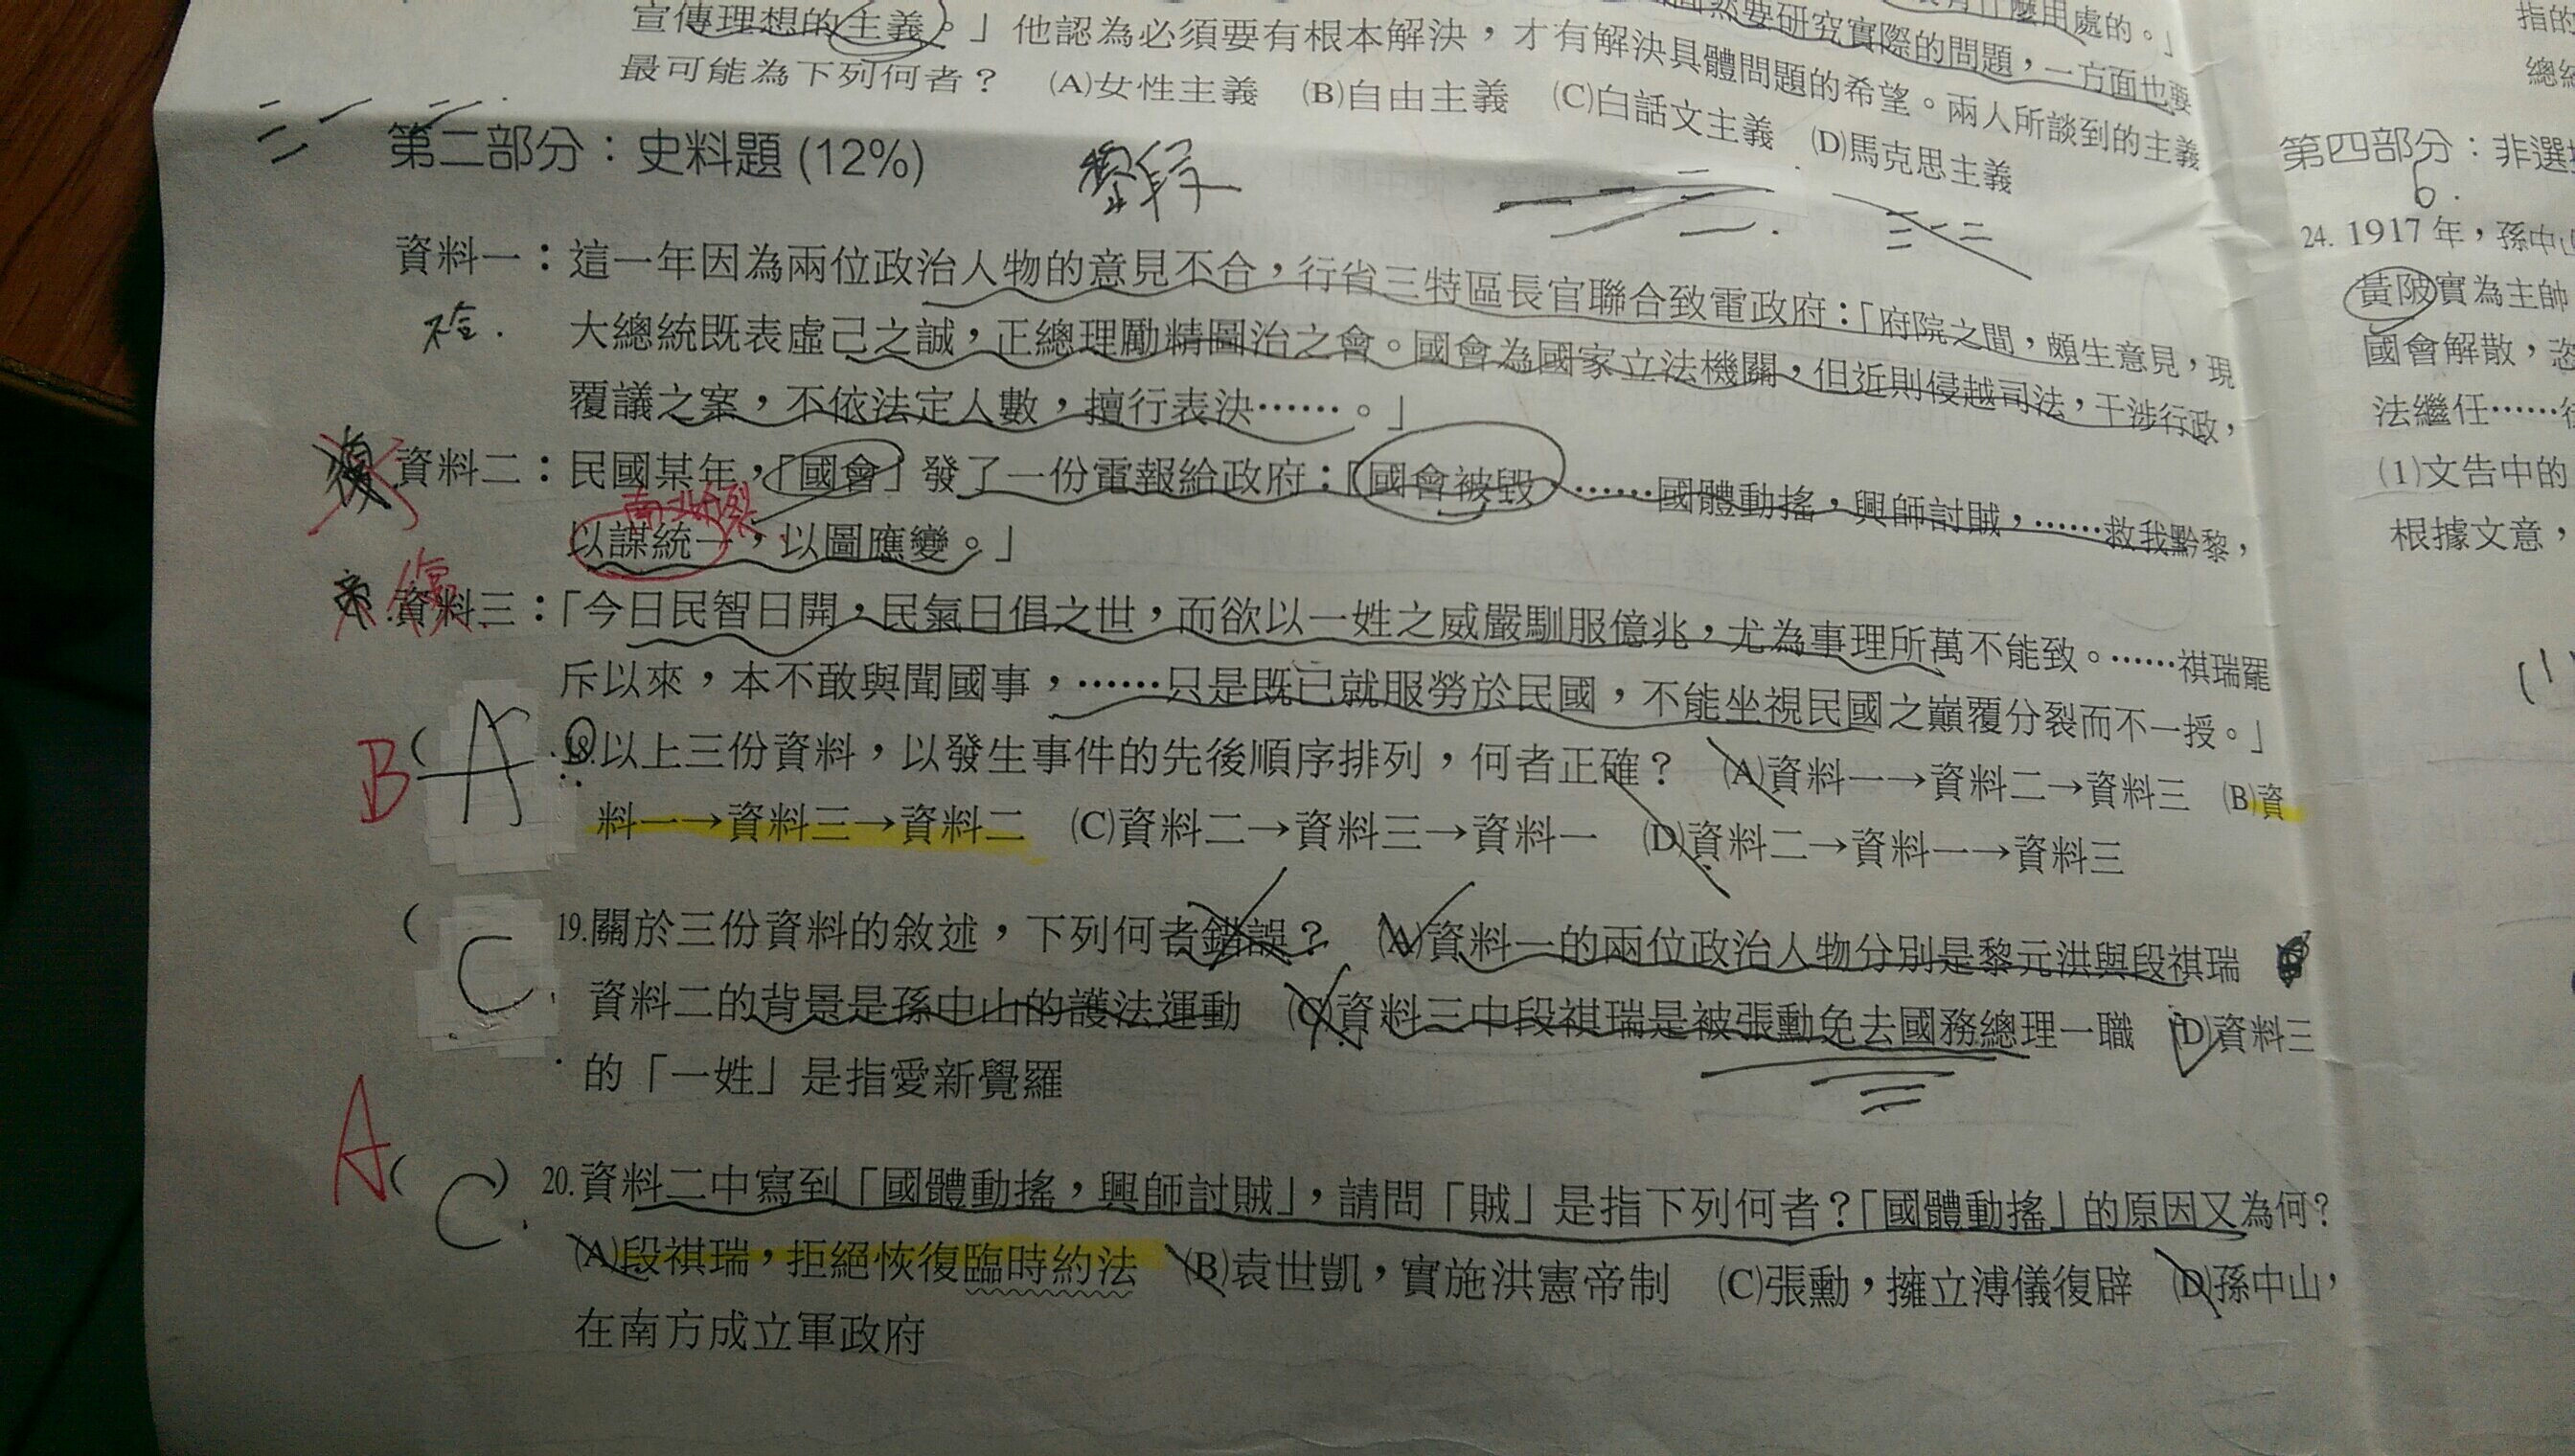 宣傳理想的主義。」他認為必須要有根本解決，才有解決具體問題的希望。兩人所談到的主義
最可能為下列何者？ (A)女性主義 (B)自由主義 (C)白話文主義 (D)馬克思主義
要研究實際的問題，一方面也要
什麼用處的。」
第二部分：史料題(12%)
黎段
資料一：這一年因為兩位政治人物的意見不合，行省三特區長官聯合致電政府：「府院之間，頗生意見，現
大總統既表虛己之誠，正總理勵精圖治之會。國會為國家立法機關，但近則侵越司法，干涉行政，
覆議之案，不依法定人數，擅行表決……。」
資料二：民國某年，「國會」發了一份電報給政府：「國會被毀，……國體動搖，興師討賊，……救我黔黎，
南北分裂
以謀統一，以圖應變。」
資料三：「今日民智日開，民氣日倡之世，而欲以一姓之威嚴馴服億兆，尤為事理所萬不能致。……祺瑞罷
斥以來，本不敢與聞國事，……只是既已就服勞於民國，不能坐視民國之巔覆分裂而不一援。」
B ( A 18.以上三份資料，以發生事件的先後順序排列，何者正確？ (A)資料一→資料二→資料三 (B)資
料一→資料三→資料二 (C)資料二→資料三→資料一 (D)資料二→資料一→資料三
( C 19.關於三份資料的敘述，下列何者錯誤？ (A)資料一的兩位政治人物分別是黎元洪與段祺瑞
資料二的背景是孫中山的護法運動 (C)資料三中段祺瑞是被張勳免去國務總理一職 (D)資料三
的「一姓」是指愛新覺羅
A ( C ) 20.資料二中寫到「國體動搖，興師討賊」，請問「賊」是指下列何者？「國體動搖」的原因又為何？
(A)段祺瑞，拒絕恢復臨時約法 (B)袁世凱，實施洪憲帝制 (C)張勳，擁立溥儀復辟 (D)孫中山，
在南方成立軍政府
指的
總統
第四部分：非選
6.
24. 1917年，孫中山
黃陂實為主帥
國會解散，恣
法繼任……
(1)文告中的
根據文意，
(1)